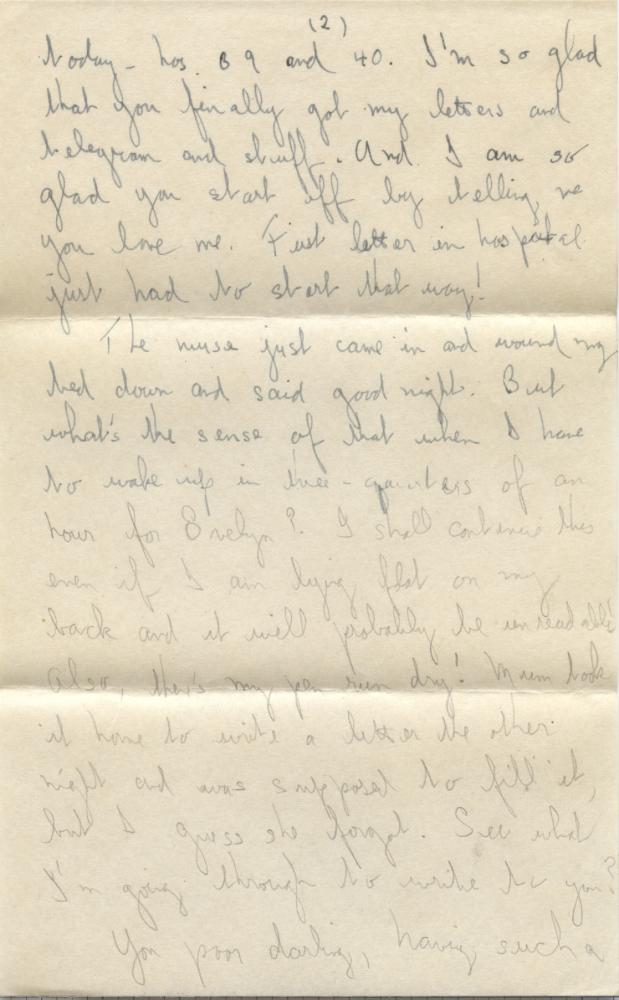 (2)
today - hos. 39 and 40. I'm so glad
that you finally got my letters and
telegram and stuff. And I am so
glad you start off by telling me
you love me. First letter in hospital
just had to start that way!
The nurse just came in and wound my
bed down and said good night. But
what's the sense of that when I have
to wake up in three-quarters of an
hour for Evelyn? I shall continue this
even if I am lying flat on my
back and it will probably be unreadable!
Also, there's my pen run dry! Mum took
it home to write a letter the other
night and was supposed to fill it,
but I guess she forgot. See what
I'm going through to write to you?
You poor darling, having such a